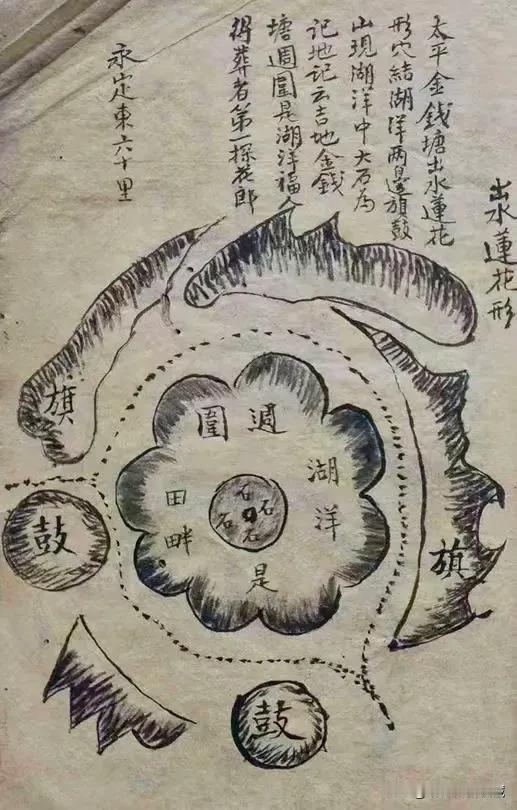 出水蓮花形
太平金錢塘出水蓮花
形穴結湖洋兩邊旗鼓
出現湖洋中大石為
記地記云吉地金錢
塘週圍是湖洋福人
得葬者第一探花郎
永定東六十里
旗
週圍
湖洋
田畔
石
石
石
石
是
鼓
旗
鼓